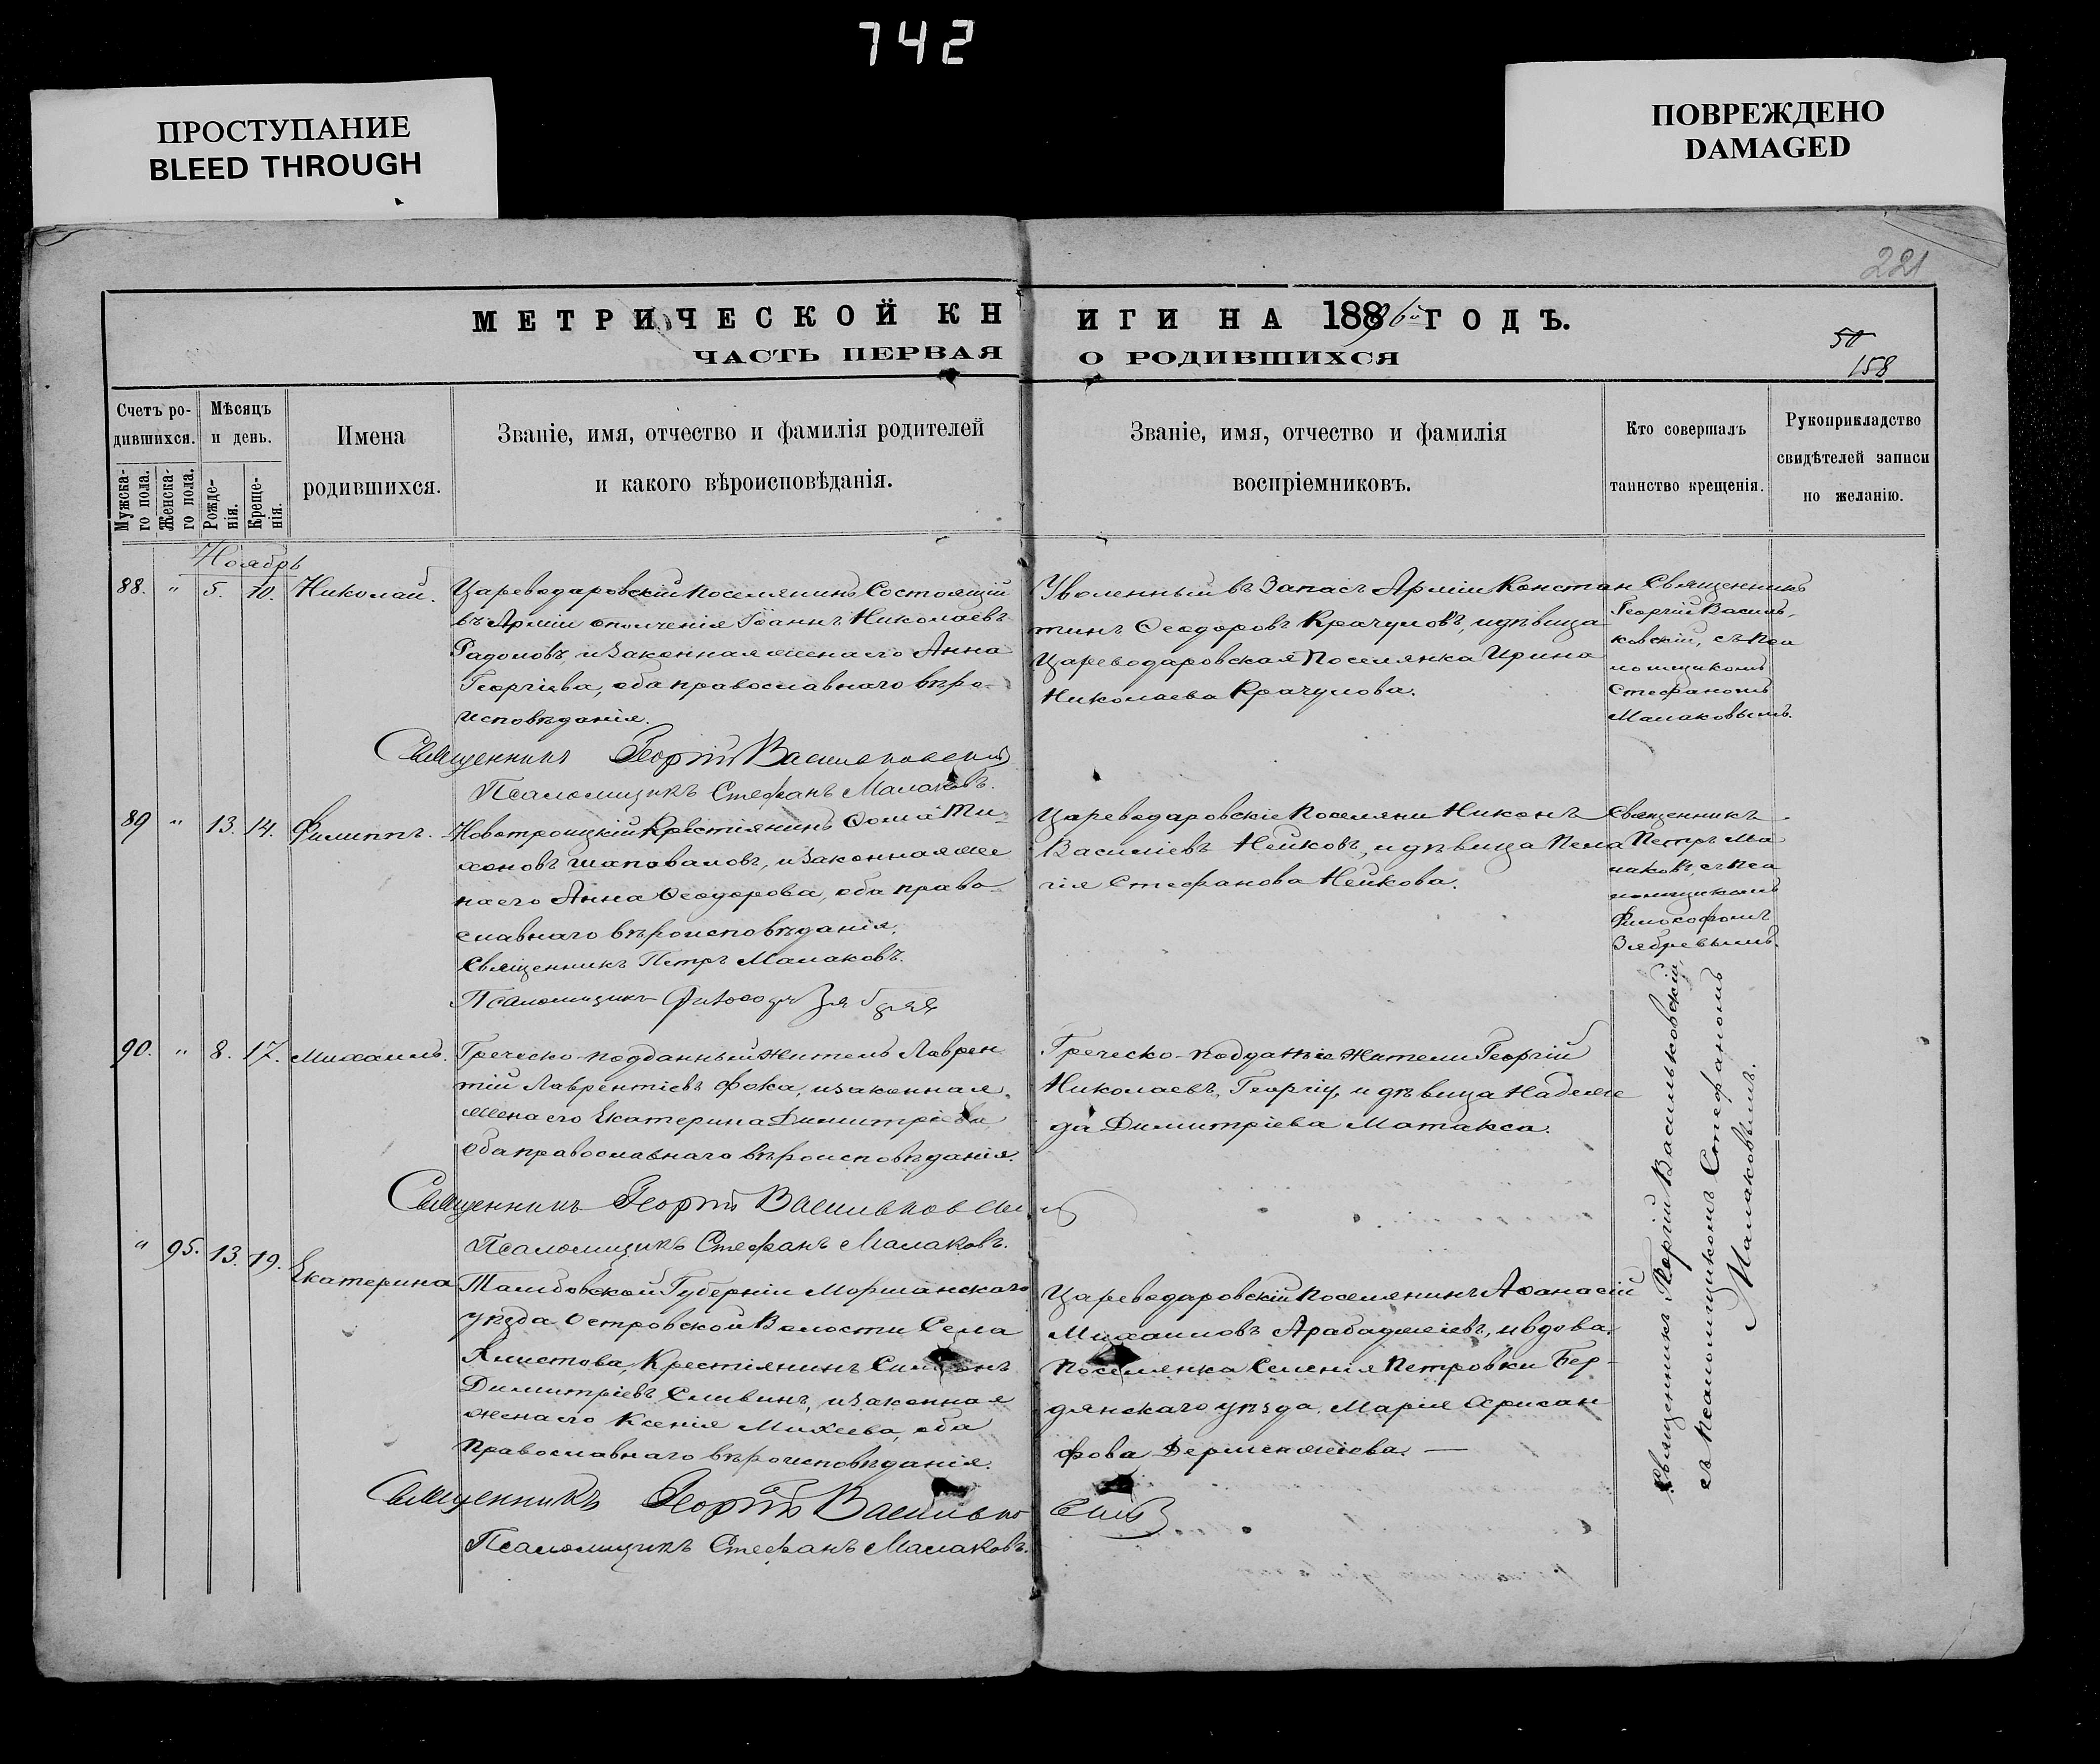 742
ПРОСТУПАНИЕ
BLEED THROUGH
ПОВРЕЖДЕНО
DAMAGED
221
МЕТРИЧЕСКОЙ КНИГИ НА 1896й ГОДЪ.
ЧАСТЬ ПЕРВАЯ О РОДИВШИХСЯ
50
158
Счетъ родившихся.
Мужскаго пола.
Женскаго пола.
Мѣсяцъ и день.
Рожденія.
Крещенія.
Имена родившихся.
Званіе, имя, отчество и фамилія родителей
и какого вѣроисповѣданія.
Званіе, имя, отчество и фамилія
воспріемниковъ.
Кто совершалъ
таинство крещенія.
Рукоприкладство
свидѣтелей записи
по желанію.
Ноябрь
88. " 5. 10. Николай.
Цареводаровскій поселянинъ Состоящій
въ Арміи ополченія Іоаннъ Николаевъ
Радоловъ, и Законная жена его Анна
Георгіева, оба православнаго вѣро-
исповѣданія.
Уволенный въ Запасъ Арміи Констан
тинъ Ѳеодоровъ Крачуловъ, и дѣвица
Цареводаровская Поселянка Ирина
Николаева Крачулова.
Священникъ
Георгій Василь-
ковскій, съ Пса
ломщикомъ
Стефаномъ
Малаковымъ.
Священникъ Георгій Васильковскій
Псаломщикъ Стефанъ Малаковъ.
89 " 13. 14. Филиппъ.
Новотроицкій Крестіянинъ Ѳома Ти-
хоновъ Шаповаловъ, и Законная же
на его Анна Ѳеодорова, оба право
славнаго вѣроисповѣданія.
Цареводаровскіе Поселяни Никонъ
Василіевъ Нейковъ, и дѣвица Пела
гія Стефанова Нейкова.
Священникъ
Петръ Ма
лаковъ, съ Пса
ломщикомъ
Философомъ
Зябревымъ.
Священникъ Петръ Малаковъ.
Псаломщикъ Философъ Зябревъ
90. " 8. 17. Михаилъ.
Греческо-подданный житель Лаврен
тій Лаврентіевъ Фока, и законная
жена его Екатерина Димитріева
оба православнаго вѣроисповѣданія.
Греческо-подданые жители Георгій
Николаевъ, Георгіу, и дѣвица Надеж
да Димитріева Матакса.
Священникъ Георгій Васильковскій
Псаломщикъ Стефанъ Малаковъ.
" 95. 13. 19. Екатерина
Тамбовской Губерніи Моршанскаго
уѣзда Островской Волости Села
Крестіянинъ
Димитріевъ Сливинъ, и законная
жена его Ксенія Михеева, оба
Православнаго вѣроисповѣданія.
Цареводаровскій Поселянинъ Аѳанасій
Михаиловъ Арабаджіевъ, и вдова
Поселянка Селенія Петровки Бер-
дянскаго уѣзда, Марія Хрисан
фова Дерменжіева. —
Священникъ Георгій Васильковскій
съ Псаломщикомъ Стефаномъ
Малаковымъ.
Священникъ Георгій Васильковскій
Псаломщикъ Стефанъ Малаковъ.